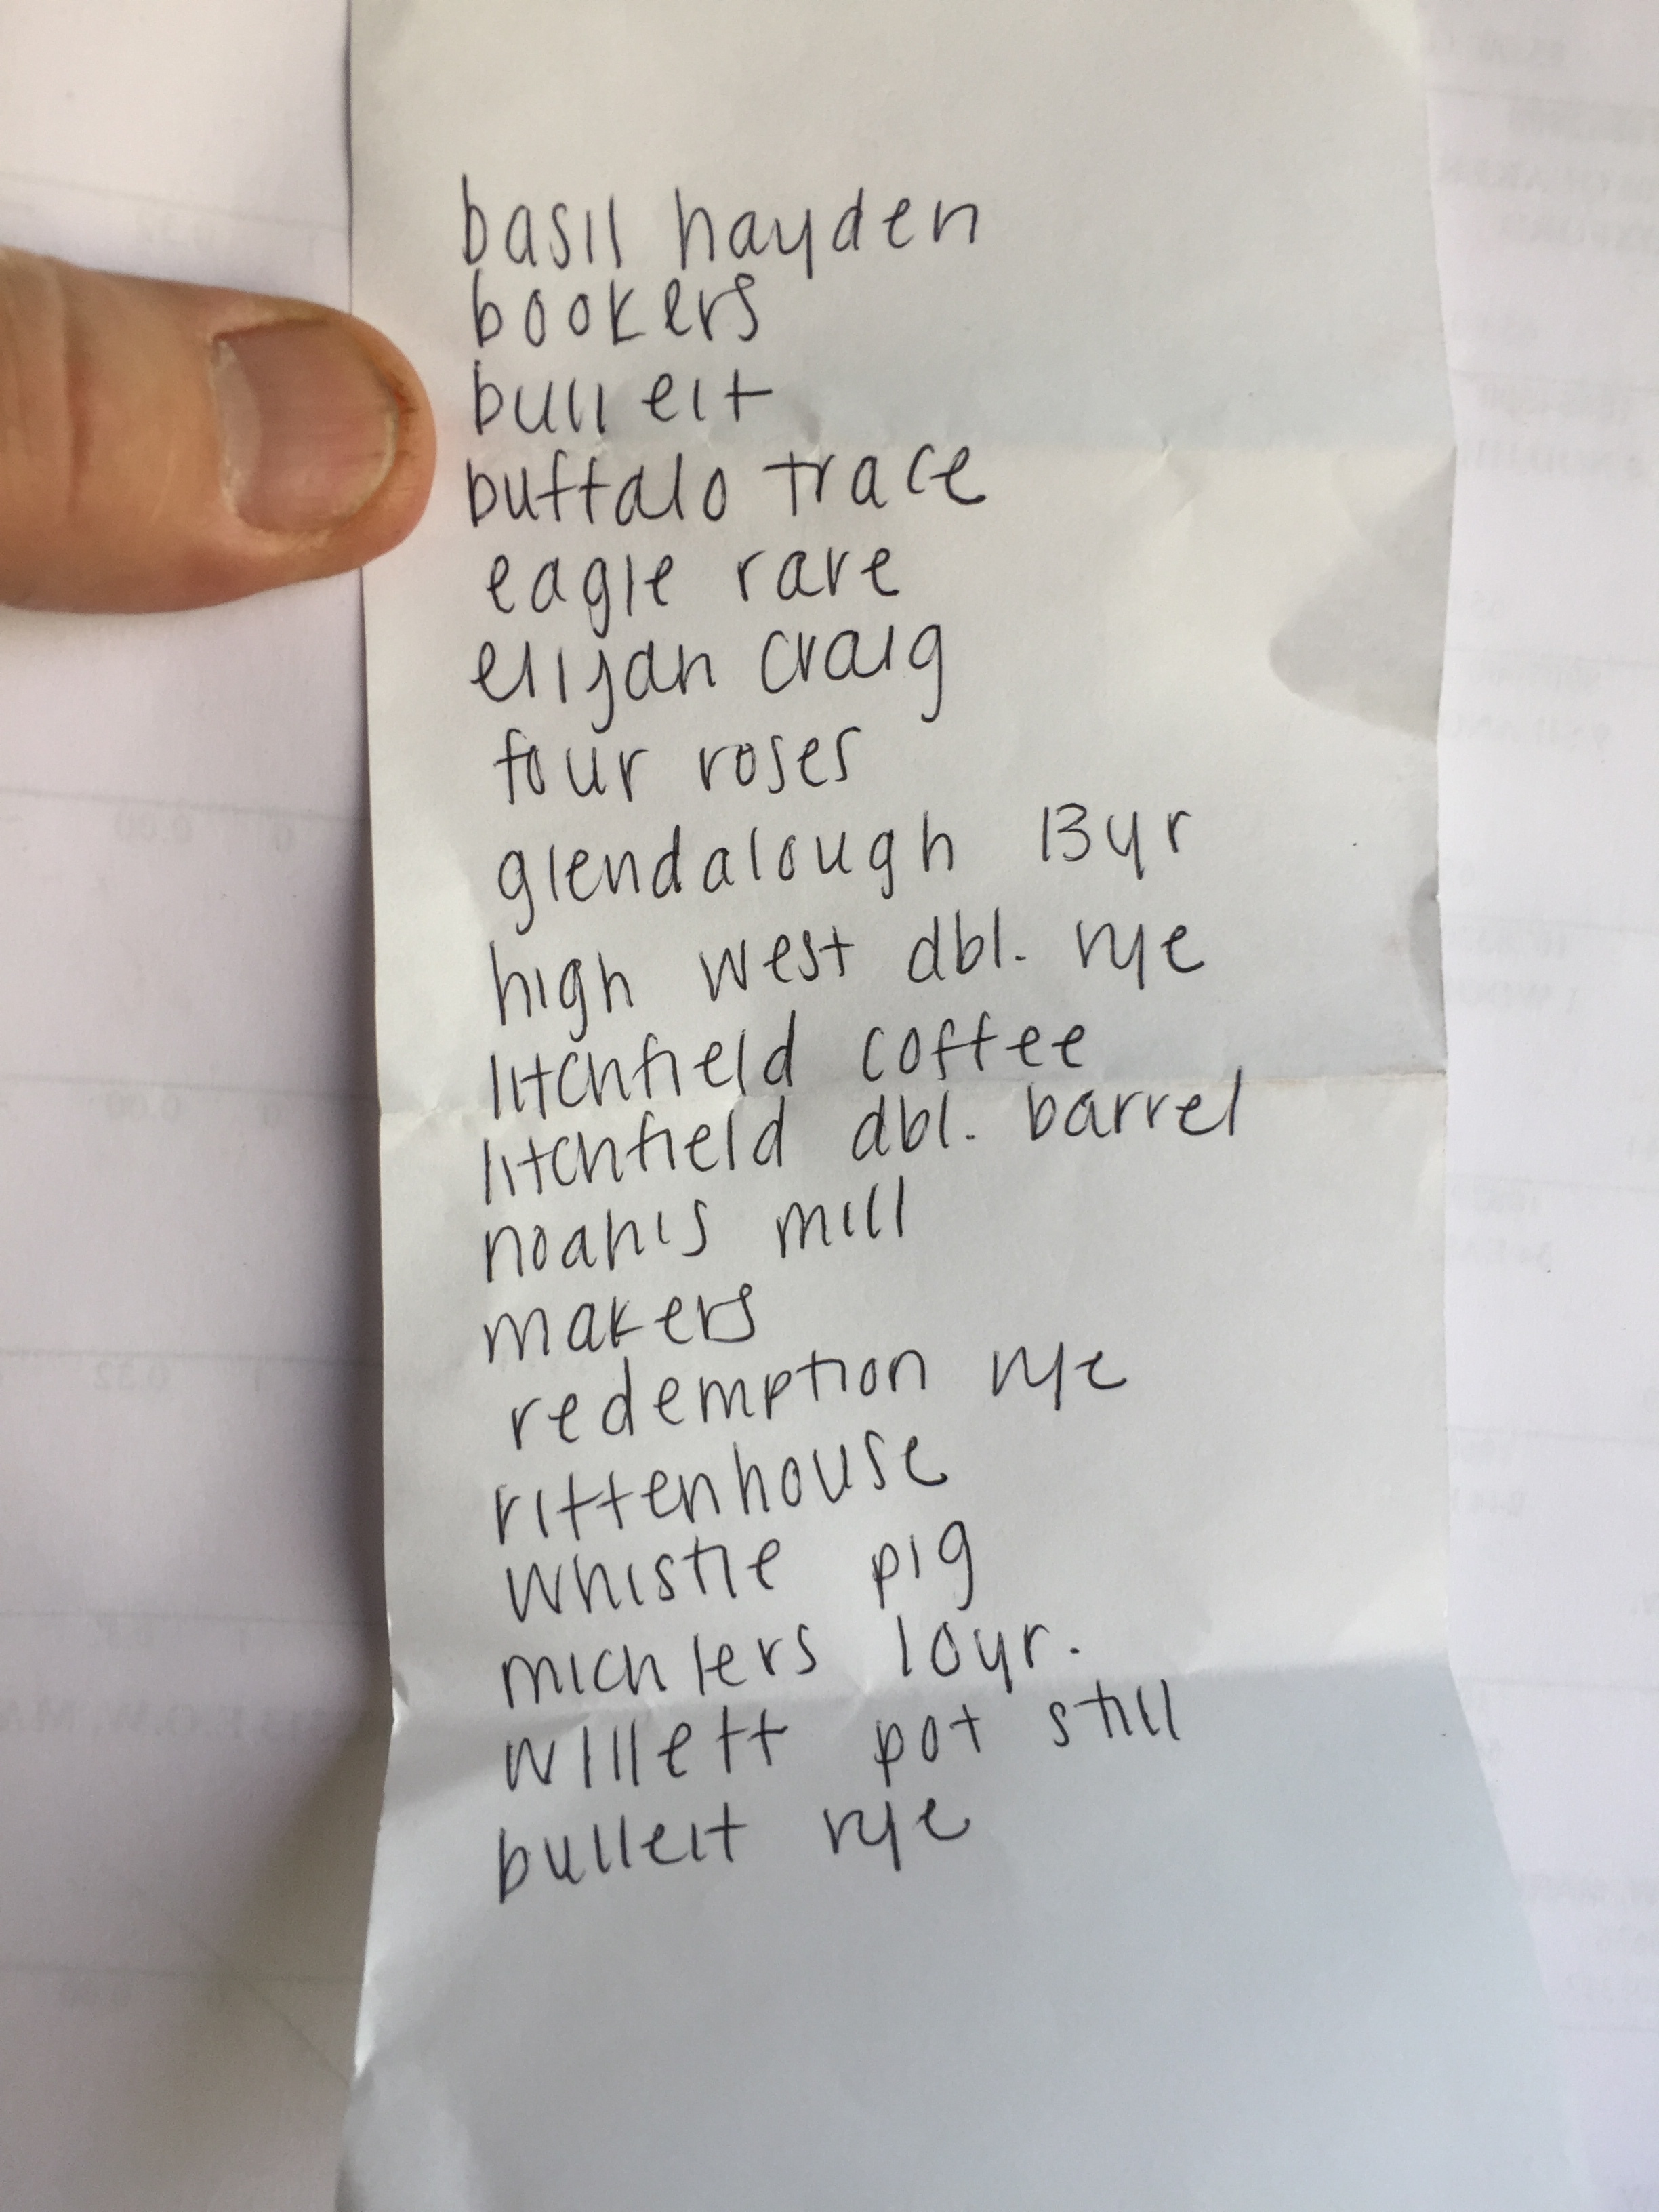 basil hayden
bookers
bulleit
buffalo trace
eagle rare
elijah craig
four roses
glendalough 13yr
high west dbl. rye
litchfield coffee
litchfield dbl. barrel
noah's mill
makers
redemption rye
rittenhouse
whistle pig
michlers 10yr.
willett pot still
bulleit rye